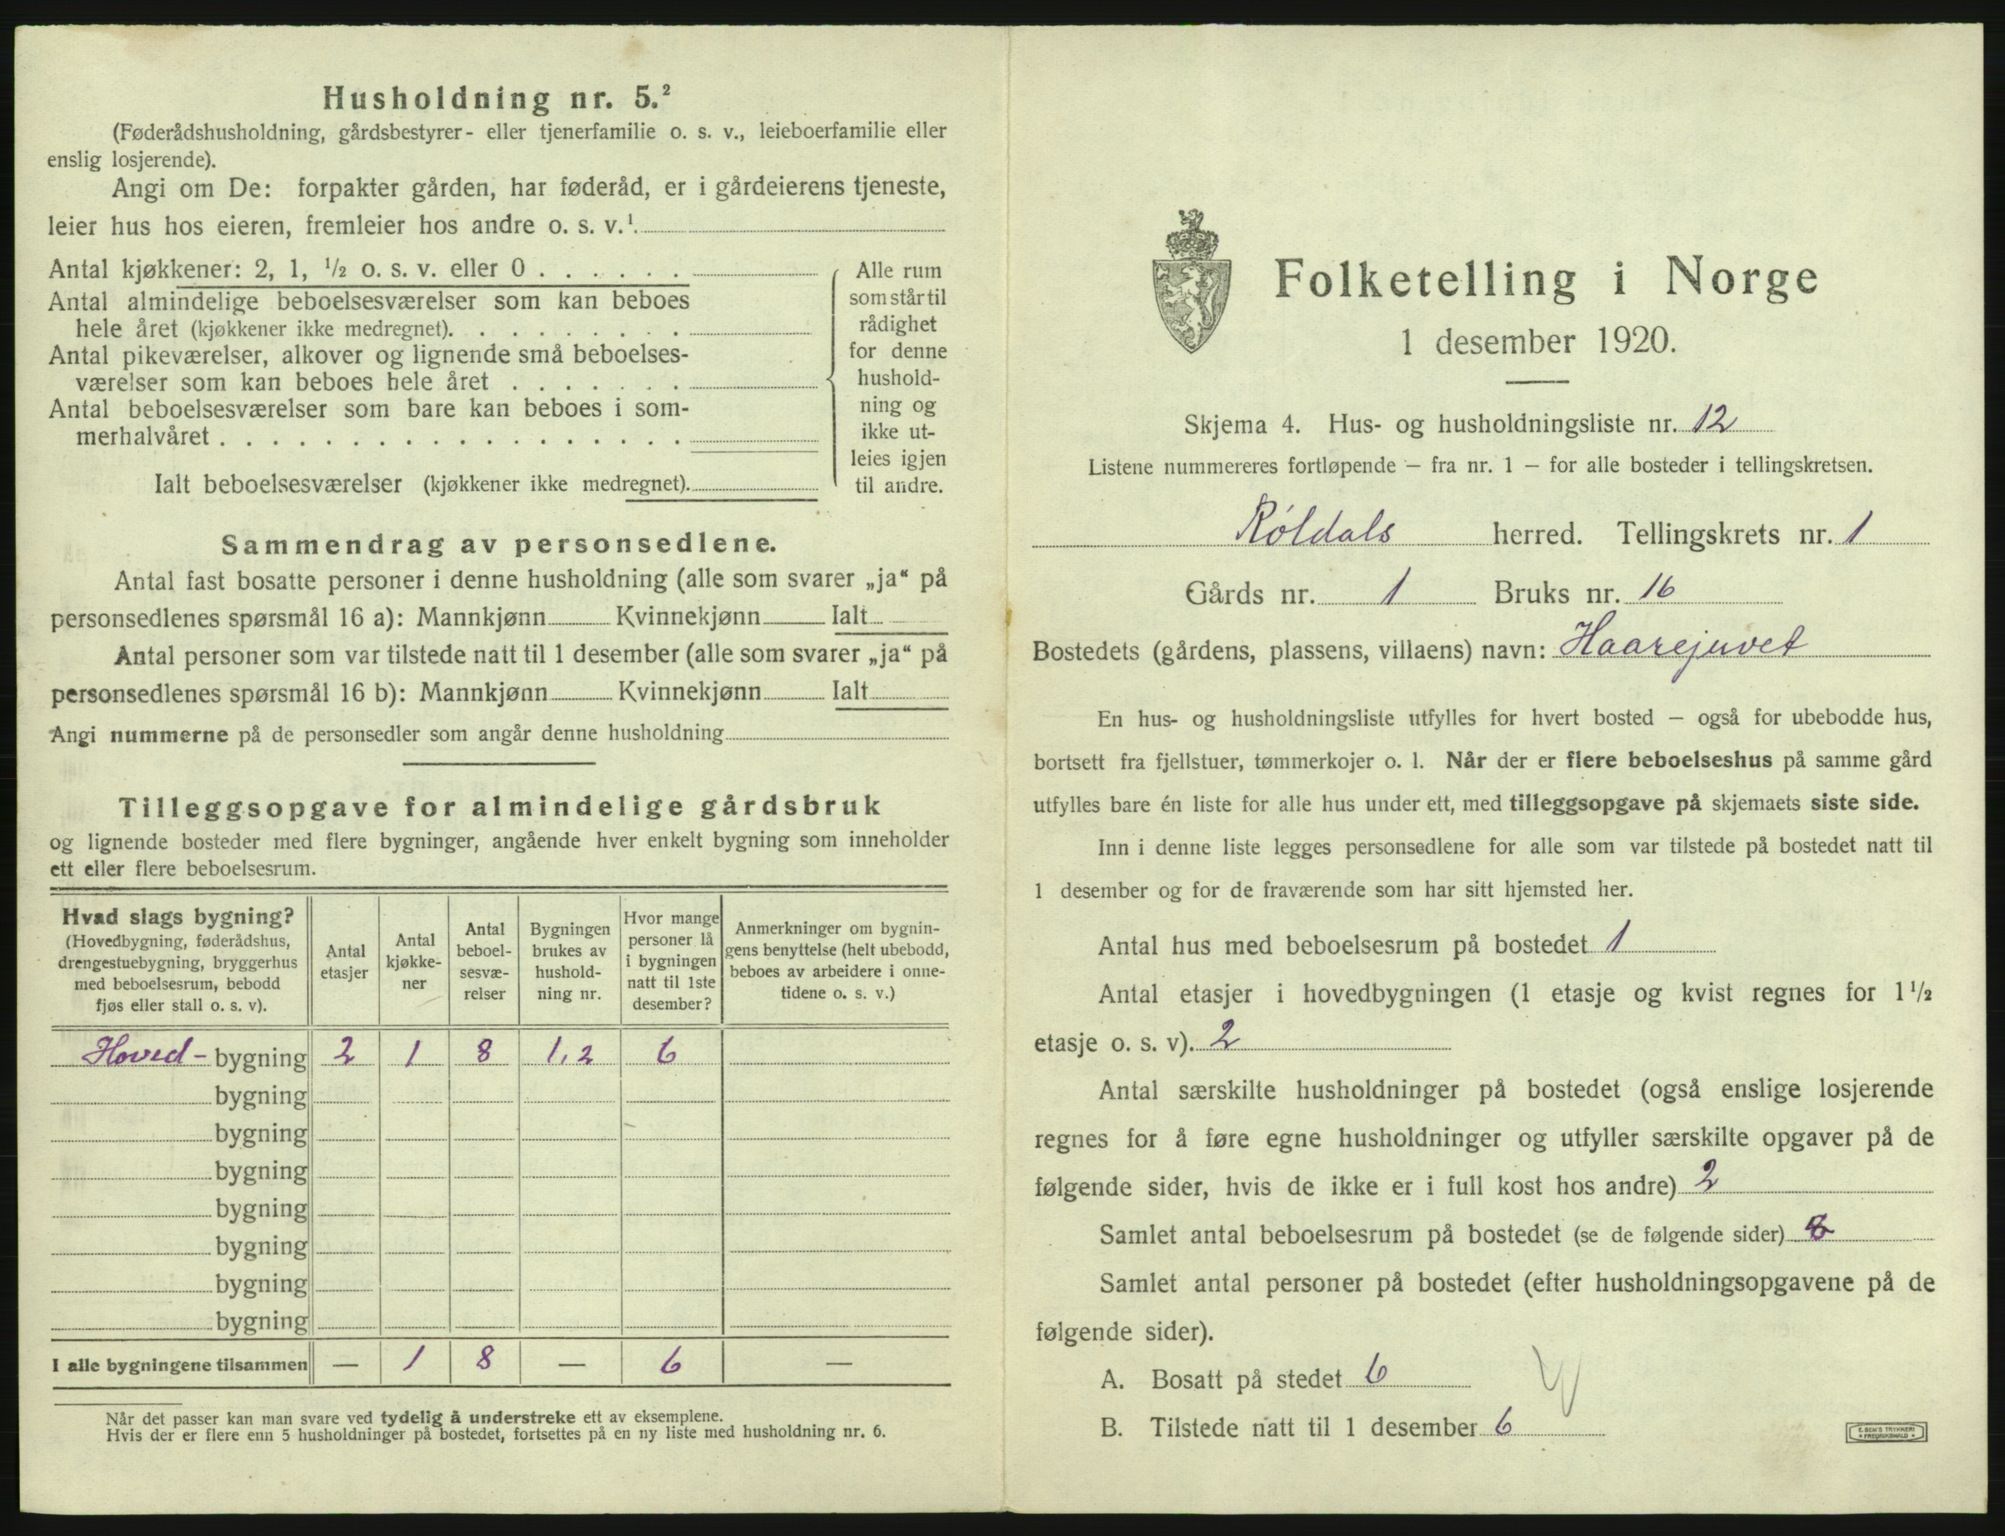 Husholdning nr. 5.²
(Føderådshusholdning, gårdsbestyrer- eller tjenerfamilie o. s. v., leieboerfamilie eller
enslig losjerende).
Angi om De: forpakter gården, har føderåd, er i gårdeierens tjeneste,
leier hus hos eieren, fremleier hos andre o. s. v.¹.
Antal kjøkkener: 2, 1, ½ o. s. v. eller 0 . . . . . .
Antal almindelige beboelsesværelser som kan beboes
hele året (kjøkkener ikke medregnet). . . . . . . . .
Antal pikeværelser, alkover og lignende små beboelses-
værelser som kan beboes hele året . . . . . . .
Antal beboelsesværelser som bare kan beboes i som-
merhalvåret . . . . . . . . . . . . . . . . . .
Ialt beboelsesværelser (kjøkkener ikke medregnet).
Alle rum
som står til
rådighet
for denne
hushold-
ning og
ikke ut-
leies igjen
til andre.
Sammendrag av personsedlene.
Antal fast bosatte personer i denne husholdning (alle som svarer „ja“ på
personsedlenes spørsmål 16 a): Mannkjønn Kvinnekjønn Ialt
Antal personer som var tilstede natt til 1 desember (alle som svarer „ja“ på
personsedlenes spørsmål 16 b): Mannkjønn Kvinnekjønn Ialt
Angi nummerne på de personsedler som angår denne husholdning
Tilleggsopgave for almindelige gårdsbruk
og lignende bosteder med flere bygninger, angående hver enkelt bygning som inneholder
ett eller flere beboelsesrum.
Hvad slags bygning?
(Hovedbygning, føderådshus,
drengestuebygning, bryggerhus
med beboelsesrum, bebodd
fjøs eller stall o. s. v).
Antal
etasjer
Antal
kjøkke-
ner
Antal
beboel-
sesvæ-
relser
Bygningen
brukes av
hushold-
ning nr.
Hvor mange
personer lå
i bygningen
natt til 1ste
desember?
Anmerkninger om bygnin-
gens benyttelse (helt ubebodd,
beboes av arbeidere i onne-
tidene o. s. v.)
Hoved- bygning 2 1 8 1,2 6
bygning
bygning
bygning
bygning
bygning
bygning
bygning
I alle bygningene tilsammen — 1 8 — 6 —
Når det passer kan man svare ved tydelig å understreke ett av eksemplene.
Hvis der er flere enn 5 husholdninger på bostedet, fortsettes på en ny liste med husholdning nr. 6.
Folketelling i Norge
1 desember 1920.
Skjema 4. Hus- og husholdningsliste nr. 12
Listene nummereres fortløpende – fra nr. 1 – for alle bosteder i tellingskretsen.
Røldals herred. Tellingskrets nr. 1
Gårds nr. 1 Bruks nr. 16
Bostedets (gårdens, plassens, villaens) navn: Haarejuvet
En hus- og husholdningsliste utfylles for hvert bosted – også for ubebodde hus,
bortsett fra fjellstuer, tømmerkojer o. l. Når der er flere beboelseshus på samme gård
utfylles bare én liste for alle hus under ett, med tilleggsopgave på skjemaets siste side.
Inn i denne liste legges personsedlene for alle som var tilstede på bostedet natt til
1 desember og for de fraværende som har sitt hjemsted her.
Antal hus med beboelsesrum på bostedet 1
Antal etasjer i hovedbygningen (1 etasje og kvist regnes for 1½
etasje o. s. v). 2
Antal særskilte husholdninger på bostedet (også enslige losjerende
regnes for å føre egne husholdninger og utfyller særskilte opgaver på de
følgende sider, hvis de ikke er i full kost hos andre) 2
Samlet antal beboelsesrum på bostedet (se de følgende sider) 8
Samlet antal personer på bostedet (efter husholdningsopgavene på de
følgende sider).
A. Bosatt på stedet 6
B. Tilstede natt til 1 desember 6
E. SEM'S TRYKKERI
FREDRIKSHALD